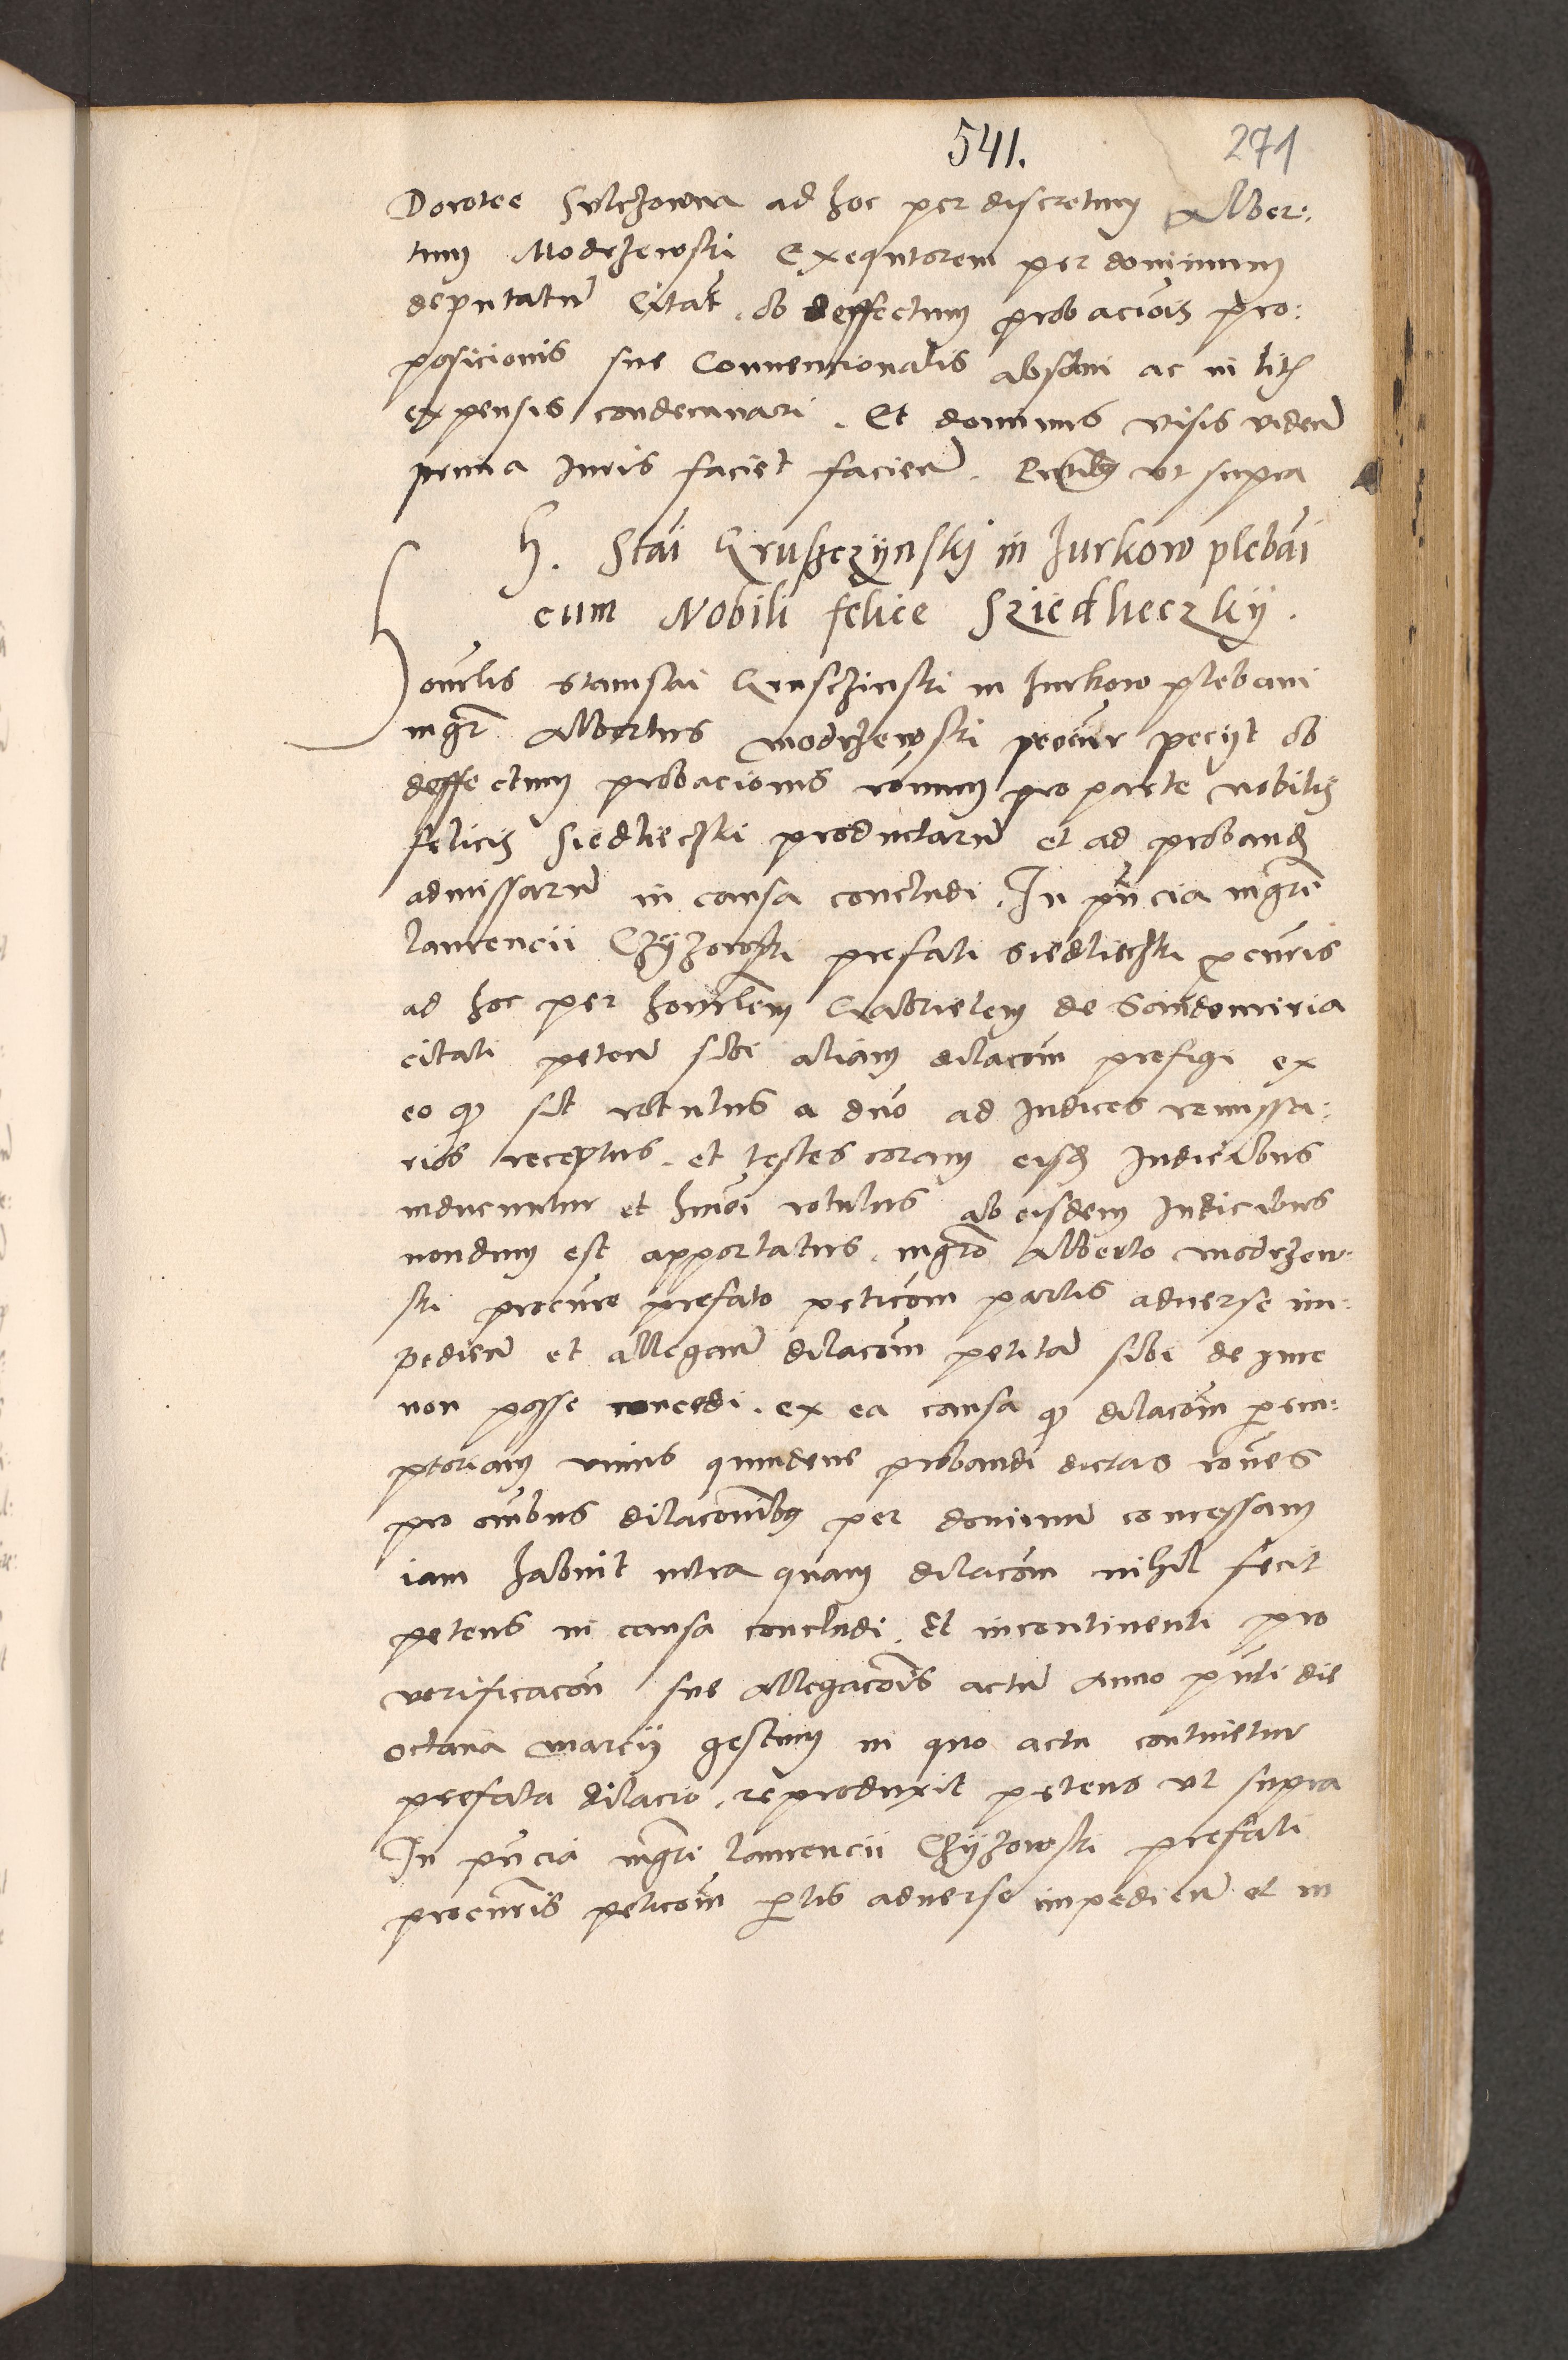 541. 271
Dorotee Sulczowna ad hoc per discretum Alber:
tum Modrzewski Exequtorem per dominum
deputatum Citat. ob deffectum probacionis pro:
posicionis sue Conventionalis absolvi ac in litis
expensis condemnari. Et dominus visis viden
prima Juris faciet facien. pntibus ut supra
H. Stai Gruszczÿnskÿ in Jurkow plebai
cum Nobili felice Sziedlieczkÿ.
Honorlis Stanislai Gruschinski in Jurkow plebani
mgr Albertus Modrzewski procur peciit ob
deffectum probacionis ronum pro parte nobilis
felicis Siedlieczki productarum et ad proband
admissarum in causa concludi. In pncia mgri
laurencii Chÿzowski prefati Siedlieczki pcuris
ad hoc per honorlem Gabrielem de Sandomiria
citati peten sibi aliam dilacom prefigi ex
eo qd sit rotulus a dno ad Judices remissa:
rios receptus. et testes coram eisd Judicibus
inducuntur et hmoi rotulus ab eisdem Judicibus
nondum est apportatus. mgro Alberto Modrzew:
ski procure prefato peticom partis adverse im:
pedien et allegan dilacom petitam sibi de jure
non posse concedi. ex ea causa qd dilacom perem:
ptoriam unius quindene probandi dictas rones
pro omibus dilaconibus per dominum concessam
iam habuit intra quam dilacom nihil fecit
petens in causa concludi. Et incontinenti pro
verificacon sue allegacois actum Anno pnti die
octava marcij gestum in quo actu continetur
prefata dilacio. reproduxit petens ut supra
In pncia mgri laurencii Chÿzowski prefati
procuris peticom ptis adverse impedien et in